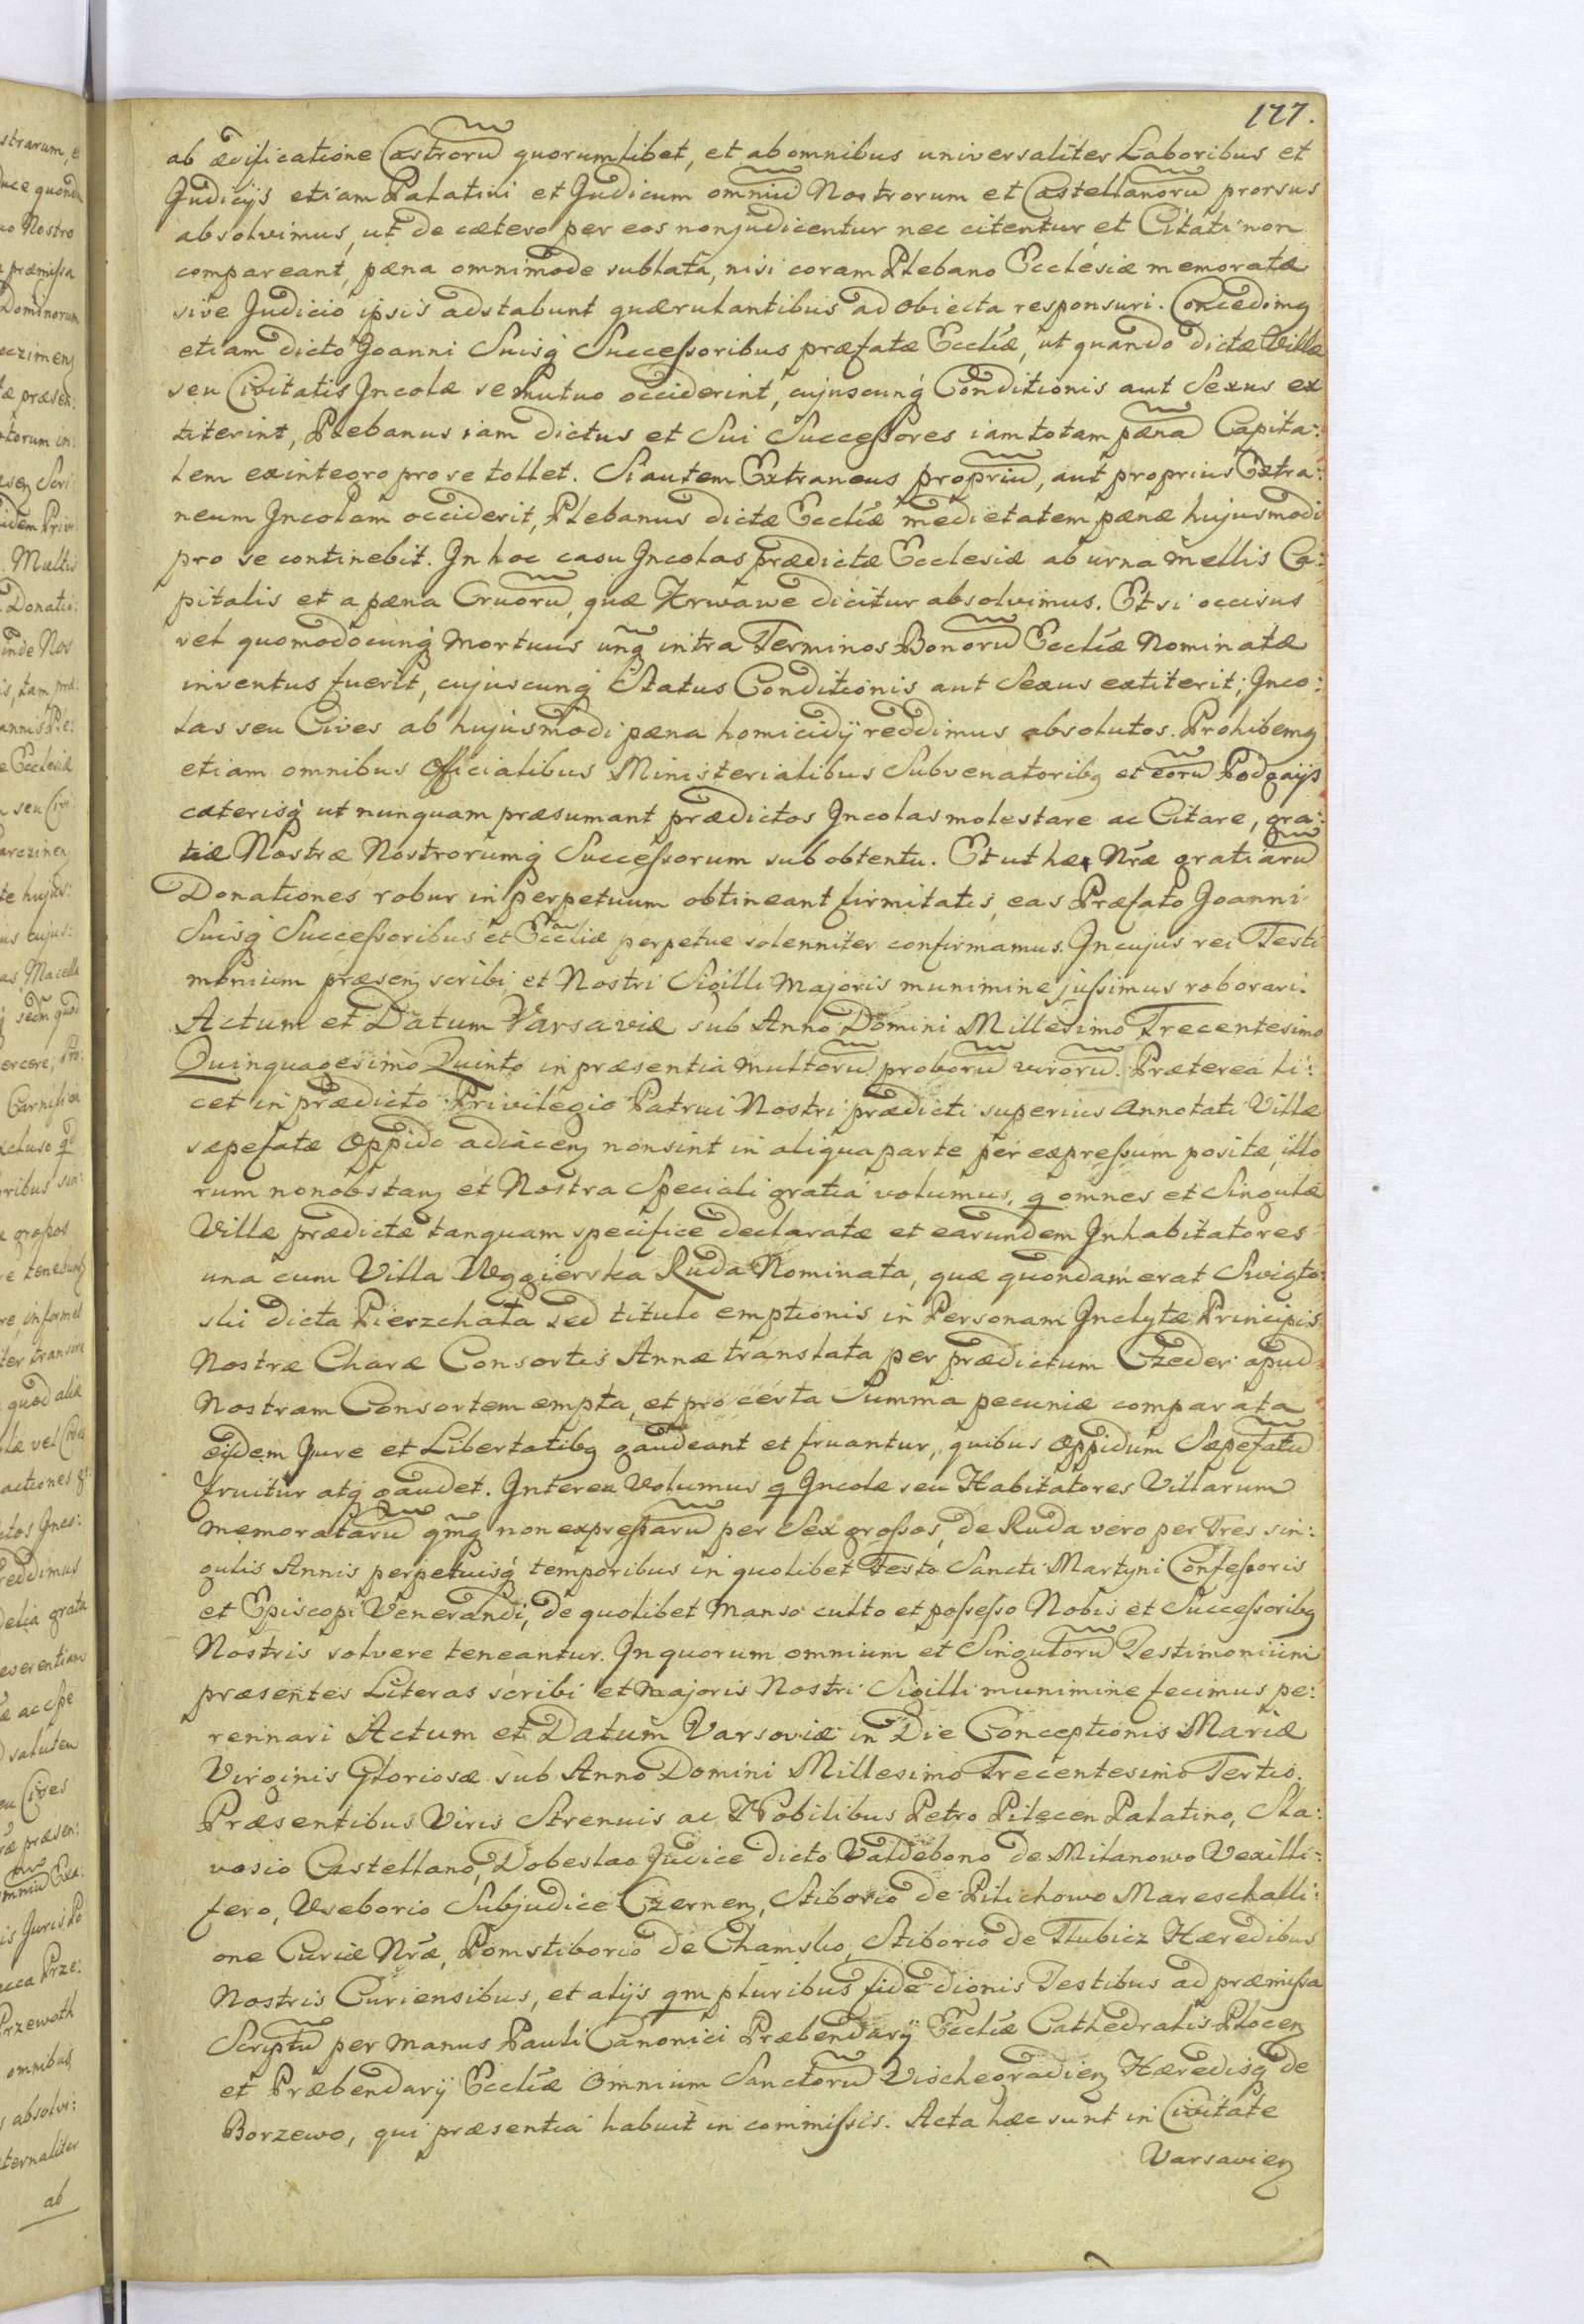 177.
ab ædificatione Castrorũ quorumlibet, et ab omnibus universaliter Laboribus et
Judicijs etiam Palatini et Judicum omniũ Nostrorum et Castellanorũ prorsus
absolvimus, ut de cætero per eos non judicentur nec citentur et Citati non
compareant, pæna omnimode sublata, nisi coram Plebano Ecclesiæ memoratæ
sive Judicio ipsis adstabunt quærulantibus ad obiecta responsuri. Concedimg
etiam dicto Joanni Suisq́ Successoribus præfatæ Eccliæ, ut quando dictæ Villæ
seu Civitatis Incolæ se mutuo occiderint, cujuscunq́ Conditionis aut Sexus ex
titerint, Plebanus iam dictus et Sui Successores iam totam pænã Capita:
lem ex integro pro se tollet. Si autem Extraneus propriũ, aut proprius Extra:
neum Incolam occiderit, Plebanus dictæ Eccliæ medietatem pænæ hujusmodi
pro se continebit. In hoc casu Incolas prædictæ Ecclesiæ ab urna mellis Ca:
pitalis et a pæna Cruorũ, quæ Krwawe dicitur absolvimus. Et si occisus
vel quomodocunq́ mortuus unq̃ intra Terminos Bonorũ Eccliæ Nominatæ
inventus fuerit, cujuscunq́ Status Conditionis aut Sexus extiterit; Inco:
las seu Cives ab hujusmodi pæna homicidij reddimus absolutos. Prohibemg
etiam omnibus Officialibus Ministerialibus Subvenatoribg et eorũ Podgaijs
cæterisq́ ut nunquam præsumant prædictos Incolas molestare ac Citare, gra:
tiæ Nostræ Nostrorumq́ Successorum sub obtentu. Et ut hæ Nræ gratiarũ
Donationes robur in perpetuum obtineant firmitatis, eas Præfato Joanni
Suisq́ Successoribus et Eccliæ perpetue solenniter confirmamus. In cujus rei Testi
monium præseñ scribi et Nostri Sigilli Majoris munimine jussimus roborari.
Actum et Datum Varsaviæ sub Anno Domini Millesimo Trecentesimo
Quinquagesimo Quinto in præsentia multorũ proborũ virorũ. Præterea li:
cet in prædicto Privilegio Patrui Nostri prædicti superius annotati Villæ
sæpefatæ Oppido adiaceñ non sint in aliqua parte per expressum positæ, illo
rum non obstañ et Nostra Speciali gratia volumus, q omnes et Singulæ
Villæ prædictæ tanquam specifice declaratæ et earundem Inhabitatores
una cum Villa Węgierska Ruda Nominata, quæ quondam erat Swięto:
slii dicta Pierzchała sed titulo emptionis in Personam Inclytæ Principis
Nostræ Charæ Consortis Annæ translata per prædictum Czeder apud
Nostram Consortem empta, et pro certa Summa pecuniæ comparata
eisdem Jure et Libertatibg gaudeant et fruantur, quibus Oppidum Sæpefatũ
fruitur atq́ gaudet. Interea volumus q Incolæ seu Habitatores Villarum
memoratarũ qm̃q non expressarũ per Sex grossos, de Ruda vero per Tres sin:
gulis Annis perpetuisq́ temporibus in quolibet Festo Sancti Martyni Confessoris
et Episcopi Venerandi, de quolibet Manso culto et possesso Nobis et Successoribg
Nostris solvere teneantur. In quorum omnium et Singulorũ Testimonium
præsentes Literas scribi et majoris Nostri Sigilli munimine fecimus pe:
rennari Actum et Datum Varsoviæ in Die Conceptionis Mariæ
Virginis Gloriosæ sub Anno Domini Millesimo Trecentesimo Tertio.
Præsentibus Viris Strenuis ac Nobilibus Petro Pilecen Palatino, Sla:
vosio Castellano, Dobeslao Judice dicto Valdebono de Milanowo Vexilli:
fero, Useborio Subjudice Czerneñ, Stiborio de Pilichowo Mareschalli:
one Curiæ Nræ, Pomstiborio de Chamsko, Stiborio de Tlubicz Hæredibus
Nostris Curiensibus, et alijs qm pluribus fide dignis Testibus ad præmissa
Scriptũ per manus Pauli Canonici Præbendarij Eccliæ Cathedralis Ploceñ
et Præbendarij Eccliæ Omnium Sanctorũ Vischegradieñ Hæredisq́ de
Borzewo, qui præsentia habuit in commissis. Acta hæc sunt in Civitate
Varsavieñ